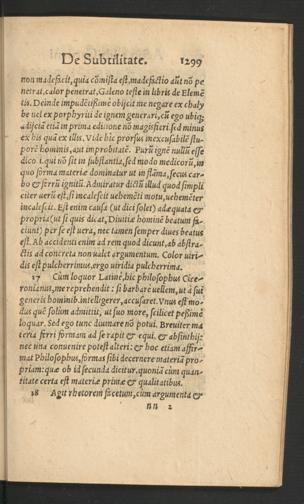 De Subtilitate. 1299
non madefacit, quia cõmista est, madefactio aũt nõ pe
netrat, calor penetrat, Galeno teste in libris de Elemẽ
tis. Deinde impudẽtißimè obijcit me negare ex chaly
be uel ex porphyrite ignem generari, cũ ego ubiq;
adijciã etiã in prima editione nõ magisteri. sed minus
ex his quã ex illis. Vide hic prorsus inexcusabilẽ stu-
porẽ hominis, aut improbitatẽ. Purũ ignẽ nullũ esse
dico .i. qui nõ sit in substantia, sed modo medicorũ, in
quo forma materiæ dominatur ut in flãma, siccus car-
bo & ferrũ ignitũ. Admiratur dictũ illud quod simpli
citer uerũ est, si incalescit uehemẽti motu, uehemẽter
incalescit. Est enim causa (ut dici solet) adæquata &
propria (ut si quis dicat, Diuitiæ hominẽ beatum fa-
ciunt) per se est uera, nec tamen semper diues beatus
est. Ab accidenti enim ad rem quod dicunt, ab abstra-
ctis ad concreta non ualet argumentum. Color uiri-
dis est pulcherrimus, ergo uiridia pulcherrima.
17 Cum loquor Latinè, hic philosophus Cice-
ronianus, me reprehendit: si barbarè uellem, ut à sui
generis hominib. intelligerer, accusaret. Vnus est mo-
dus quẽ solum admittit, ut suo more, scilicet peßimè
loquar. Sed ego tunc diuinare nõ potui. Breuiter ma
teria ferri formam ad se rapit & equi. & absinthij:
nec una conuenire potest alteri: & hoc etiam affir-
mat Philosophus, formas sibi decernere materiã pro-
priam: quæ ob id secunda dicitur. quoniã cum quan-
titate certa est materiæ primæ & qualitatibus.
18 Agit rhetorem facetum, cùm argumenta &
nn 2